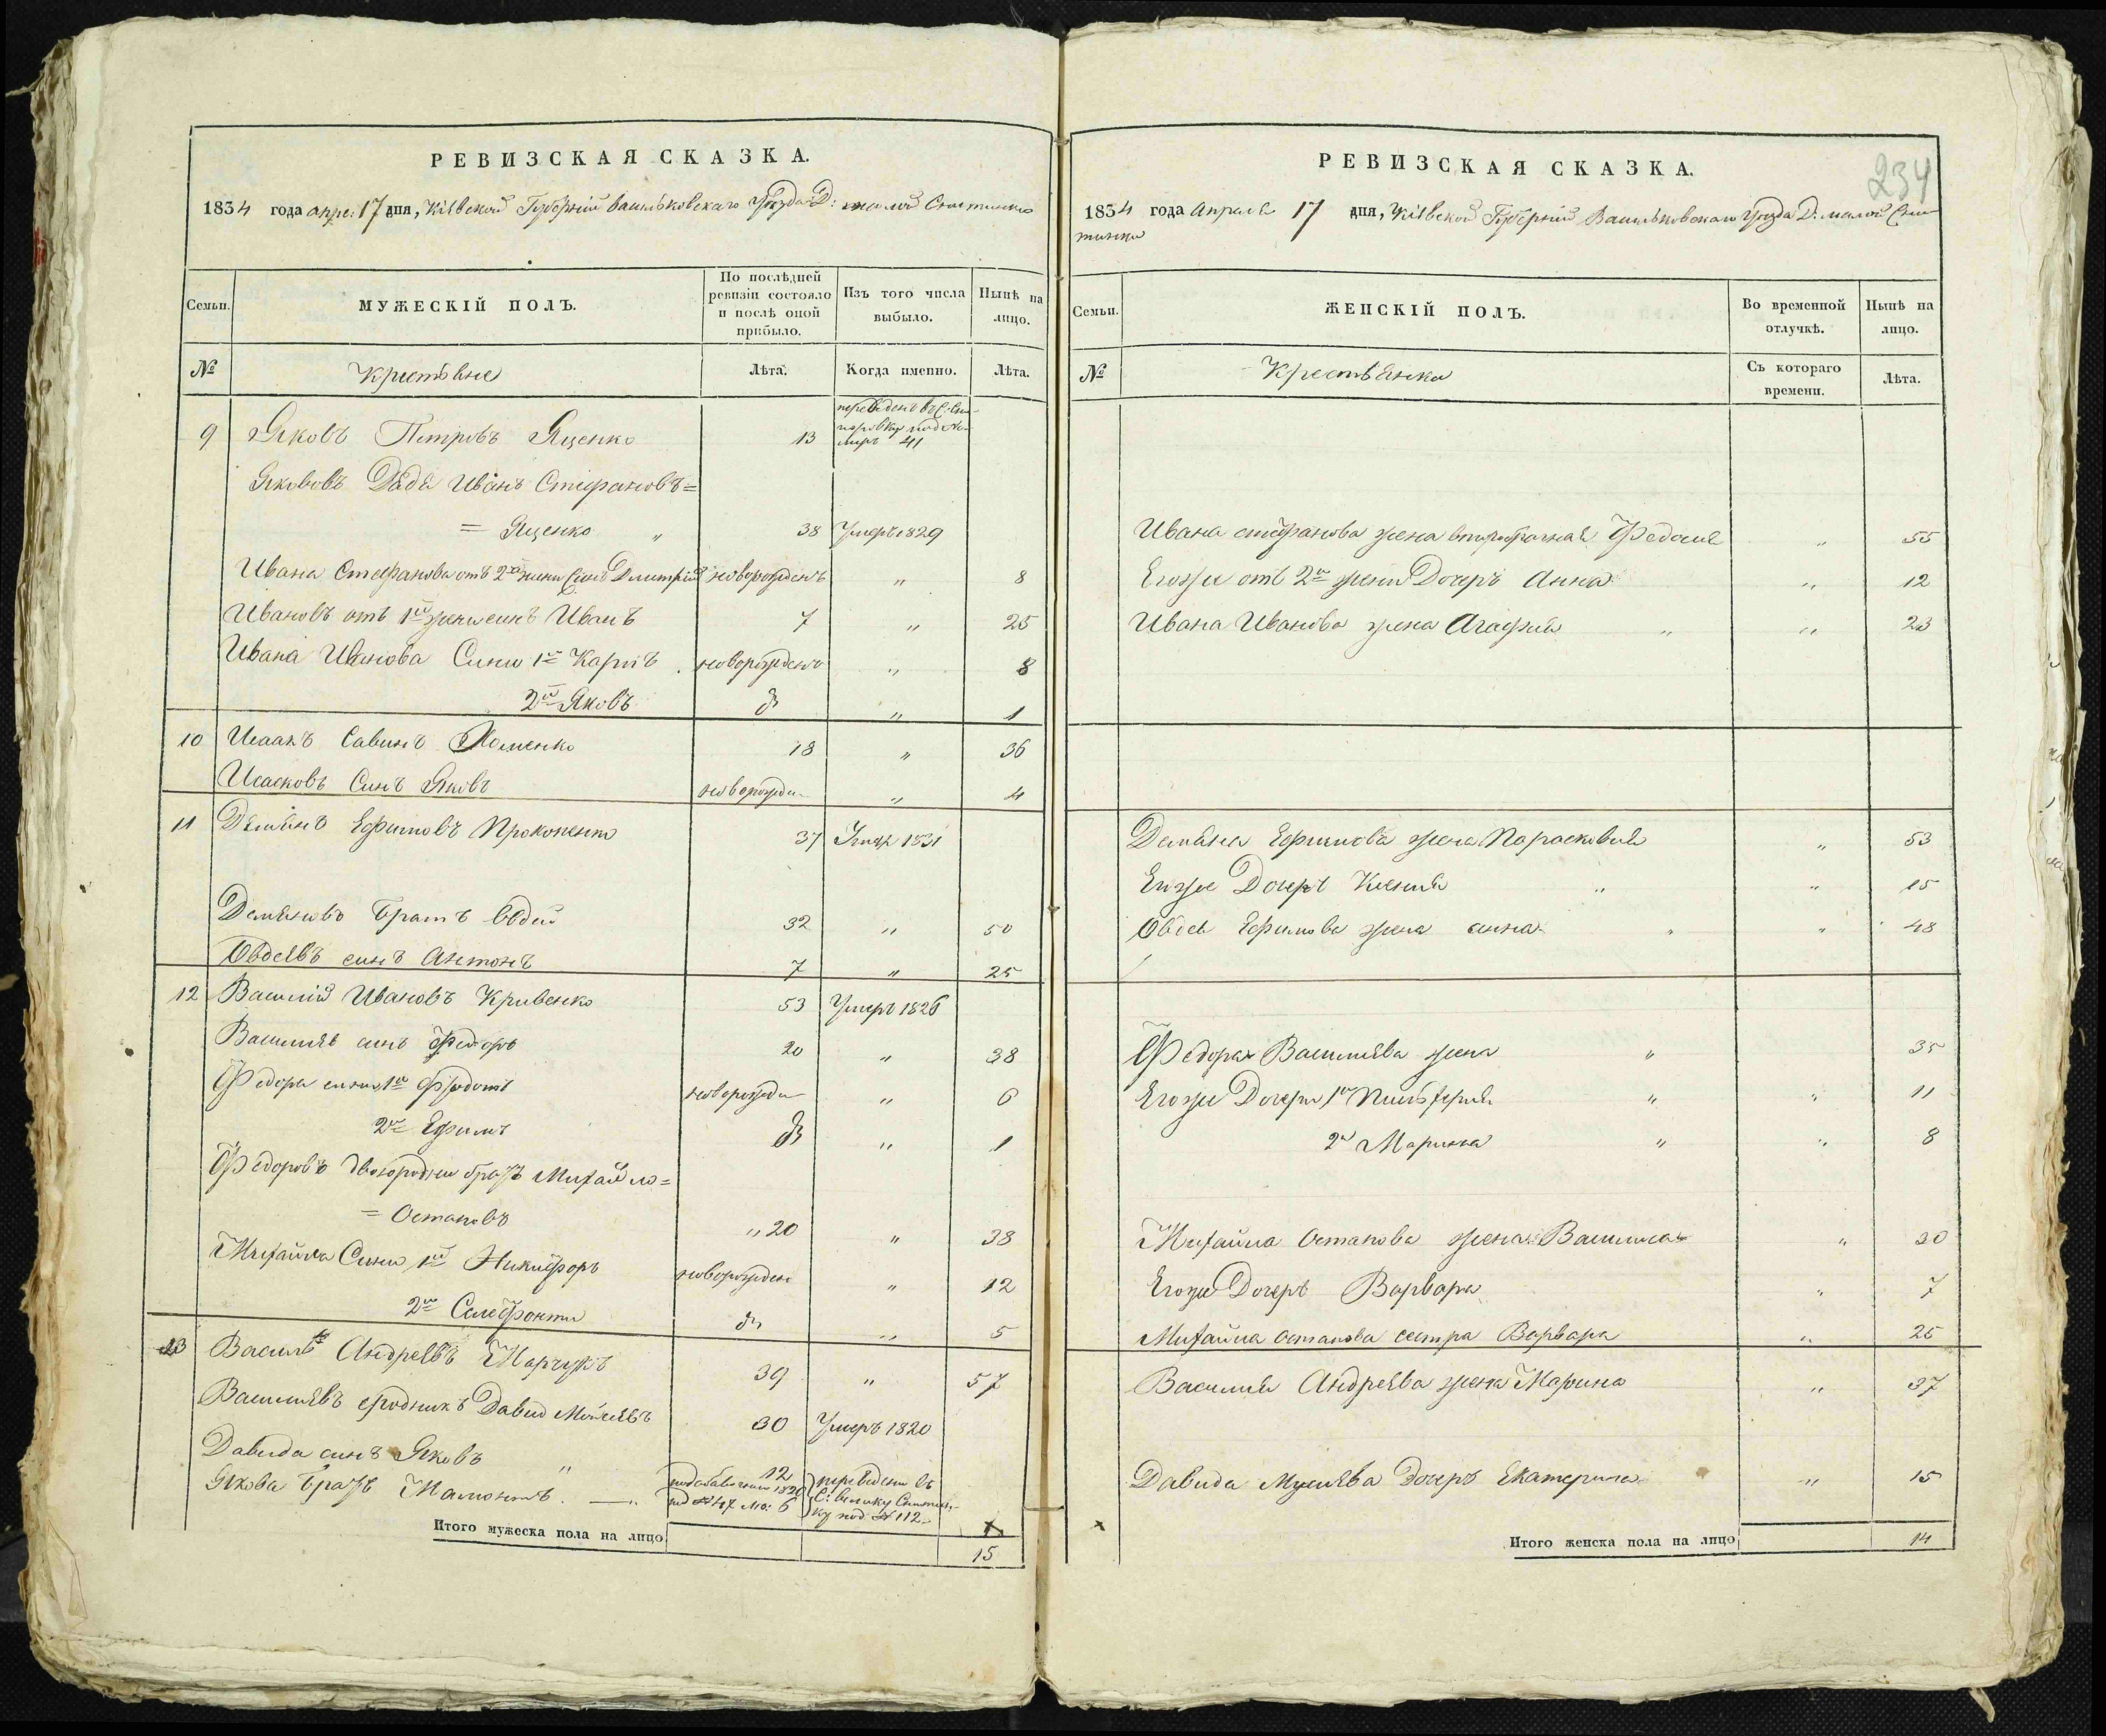 РЕВИЗСКАЯ СКАЗКА.
1834 года апре: 17 дня, Кіевской Губерніи Васильковскаго Уѣзда Д: малой
Семьи.
МУЖЕСКІЙ ПОЛЪ.
По послѣдней ревизіи состояло и послѣ оной прибыло.
Изъ того числа выбыло.
Нынѣ на лицо.
№
Крестьяне
Лѣта.
Когда именно.
Лѣта.
9 Яковъ Петровъ Яценко 13 переведенъ въ С: под 41
Яхововъ Дядя Иванъ Стефановъ=
= Яценко " 38 Умеръ 1829
Ивана Стефанова отъ 2й жены Сынъ Дмитрій новорожденъ " 8
Ивановъ отъ 1й жены синъ Иванъ 7 " 25
Ивана Иванова Сини 1й Карпъ новорожденъ " 8
2й Яковъ " 1
10 Исаакъ Савинъ Хоменко 18 " 36
Исааковъ Синъ Яковъ новорожде " 4
11 Демьянъ Ефимовъ Прокопенко 37 Умер 1831
Демьяновъ Братъ Овдей 32 " 50
Овдеевъ синъ Антонъ 7 " 25
12 Василій Ивановъ Кривенко 53 Умеръ 1826
Васильевъ синъ Федоръ 20 " 38
Федора сини 1й Федотъ новорожде " 6
2й Ефимъ " 1
Федоровъ двоюродни братъ Михайло=
= Остаповъ " 20 " 38
Михайла Сини 1й Никифоръ новорожден " 12
2й " 5
13 Василь Андреевъ 39 " 57
Васильевъ сродникъ Давид Мойсеевъ 30 Умеръ 1820
Давида синъ Яковъ " 12 переведени въ
Якова Братъ Мамонтъ 1820 6 С: велику под № 112
Итого мужеска пола на лицо 15
РЕВИЗСКАЯ СКАЗКА.
234
1834 года Апреля 17 дня, Кіевской Губерніи Васильковскаго Уѣзда Д: малой
Семьи.
ЖЕНСКІЙ ПОЛЪ.
Во временной отлучкѣ.
Нынѣ на лицо.
№
Крестьянки
Съ котораго времени.
Лѣта.
Ивана Стефанова жена второбрачная Федосия " 55
Егоже отъ 2й жени Дочерь Анна " 12
Ивана Иванова жена Агафия " " 23
Демьяна Ефимова жена Парасковия " 53
Егоже Дочерь Ксения " " 15
Овдея Ефимова жена анна " " 48
Федора Васильева жена " 35
Егоже Дочери 1я " " 11
2я Марина " " 8
Михайла Остапова жена Василиса " 30
Егоже Дочерь Варвара " 7
Михайла остапова сестра Варвара " 25
Василия Андреева жена Марина " 37
Давида Мусиева дочерь Екатерина " 15
Итого женска пола на лицо 14